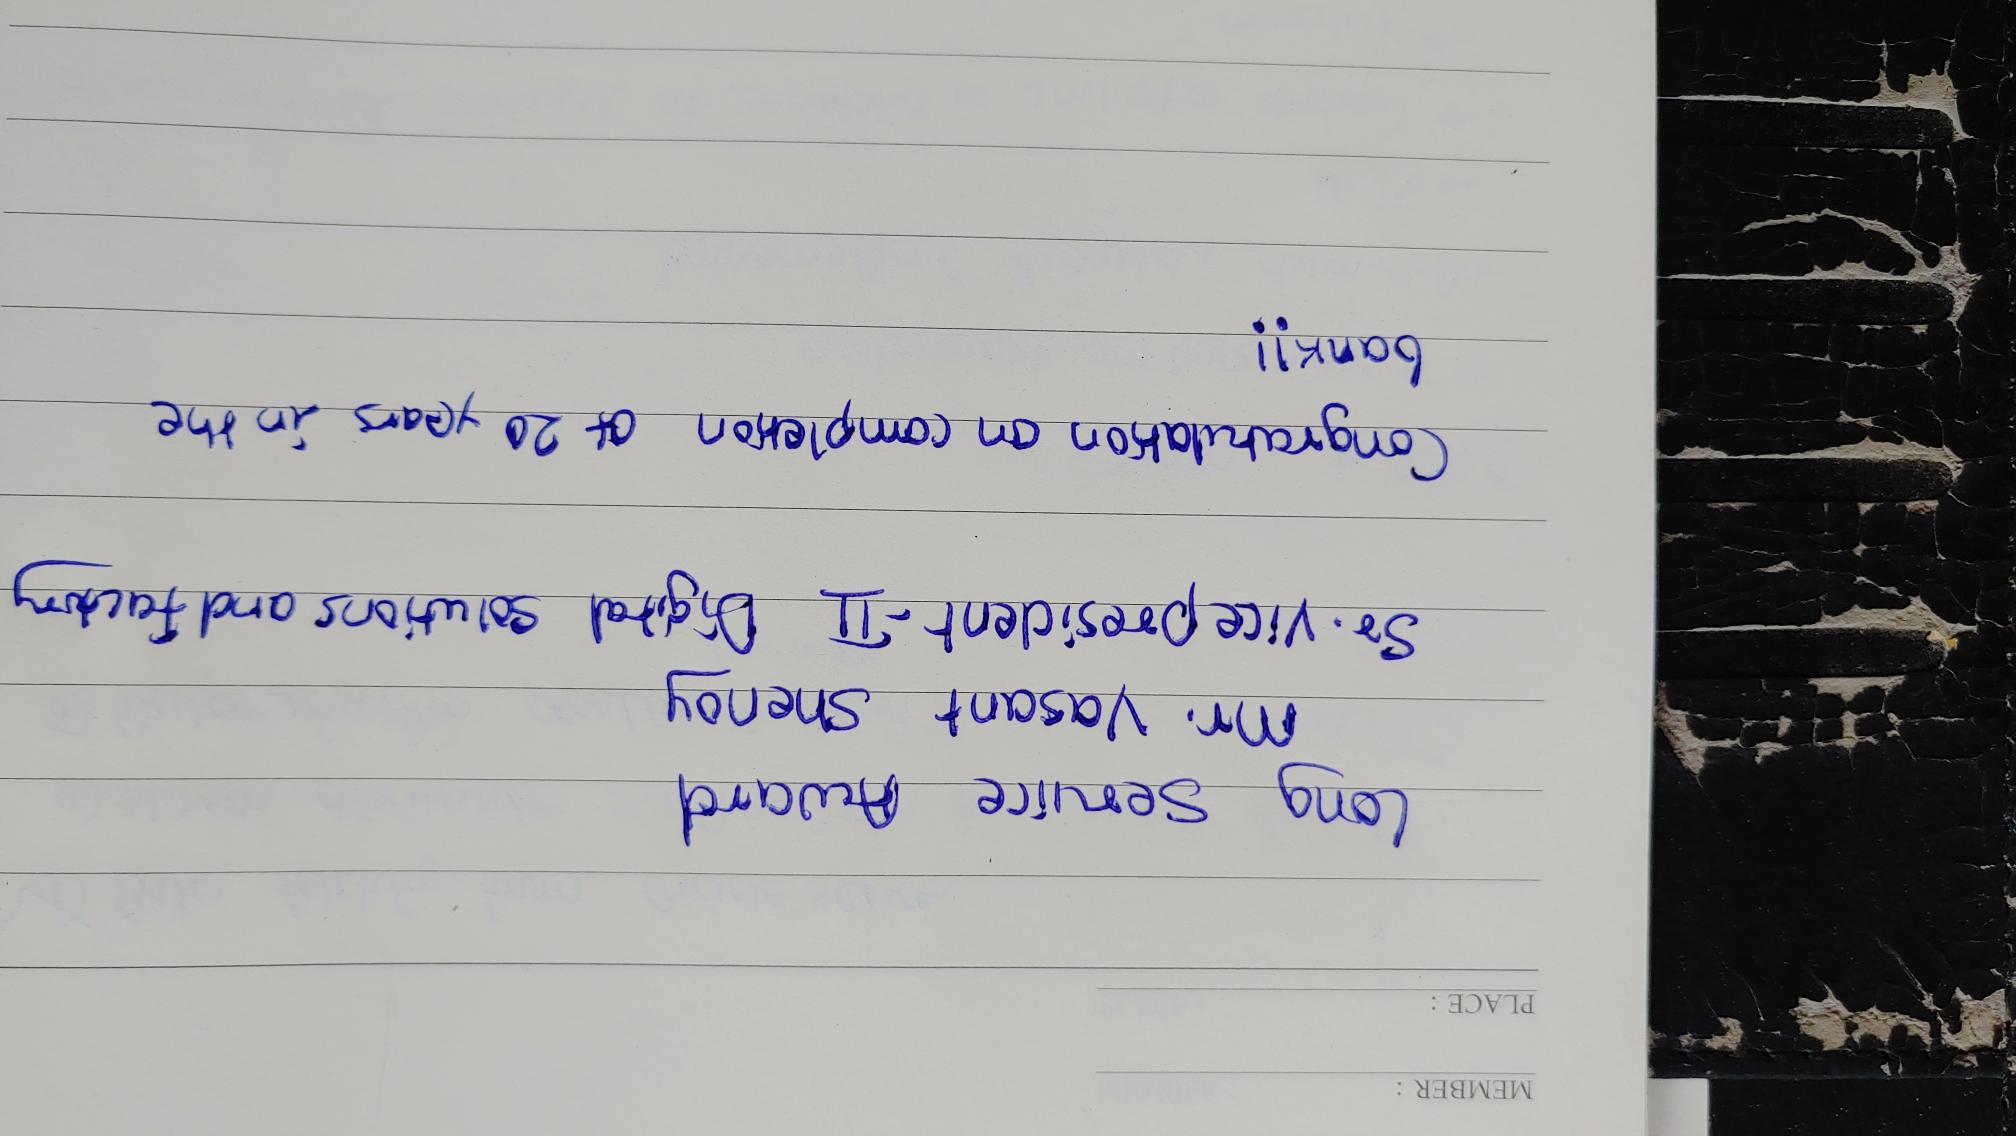 MEMBER :
PLACE :
Long Service Award
Mr. Vasant Shenoy
Sr. Vice president - II Digital solutions and factory
Congratulation on completion of 20 years in the
bank!!